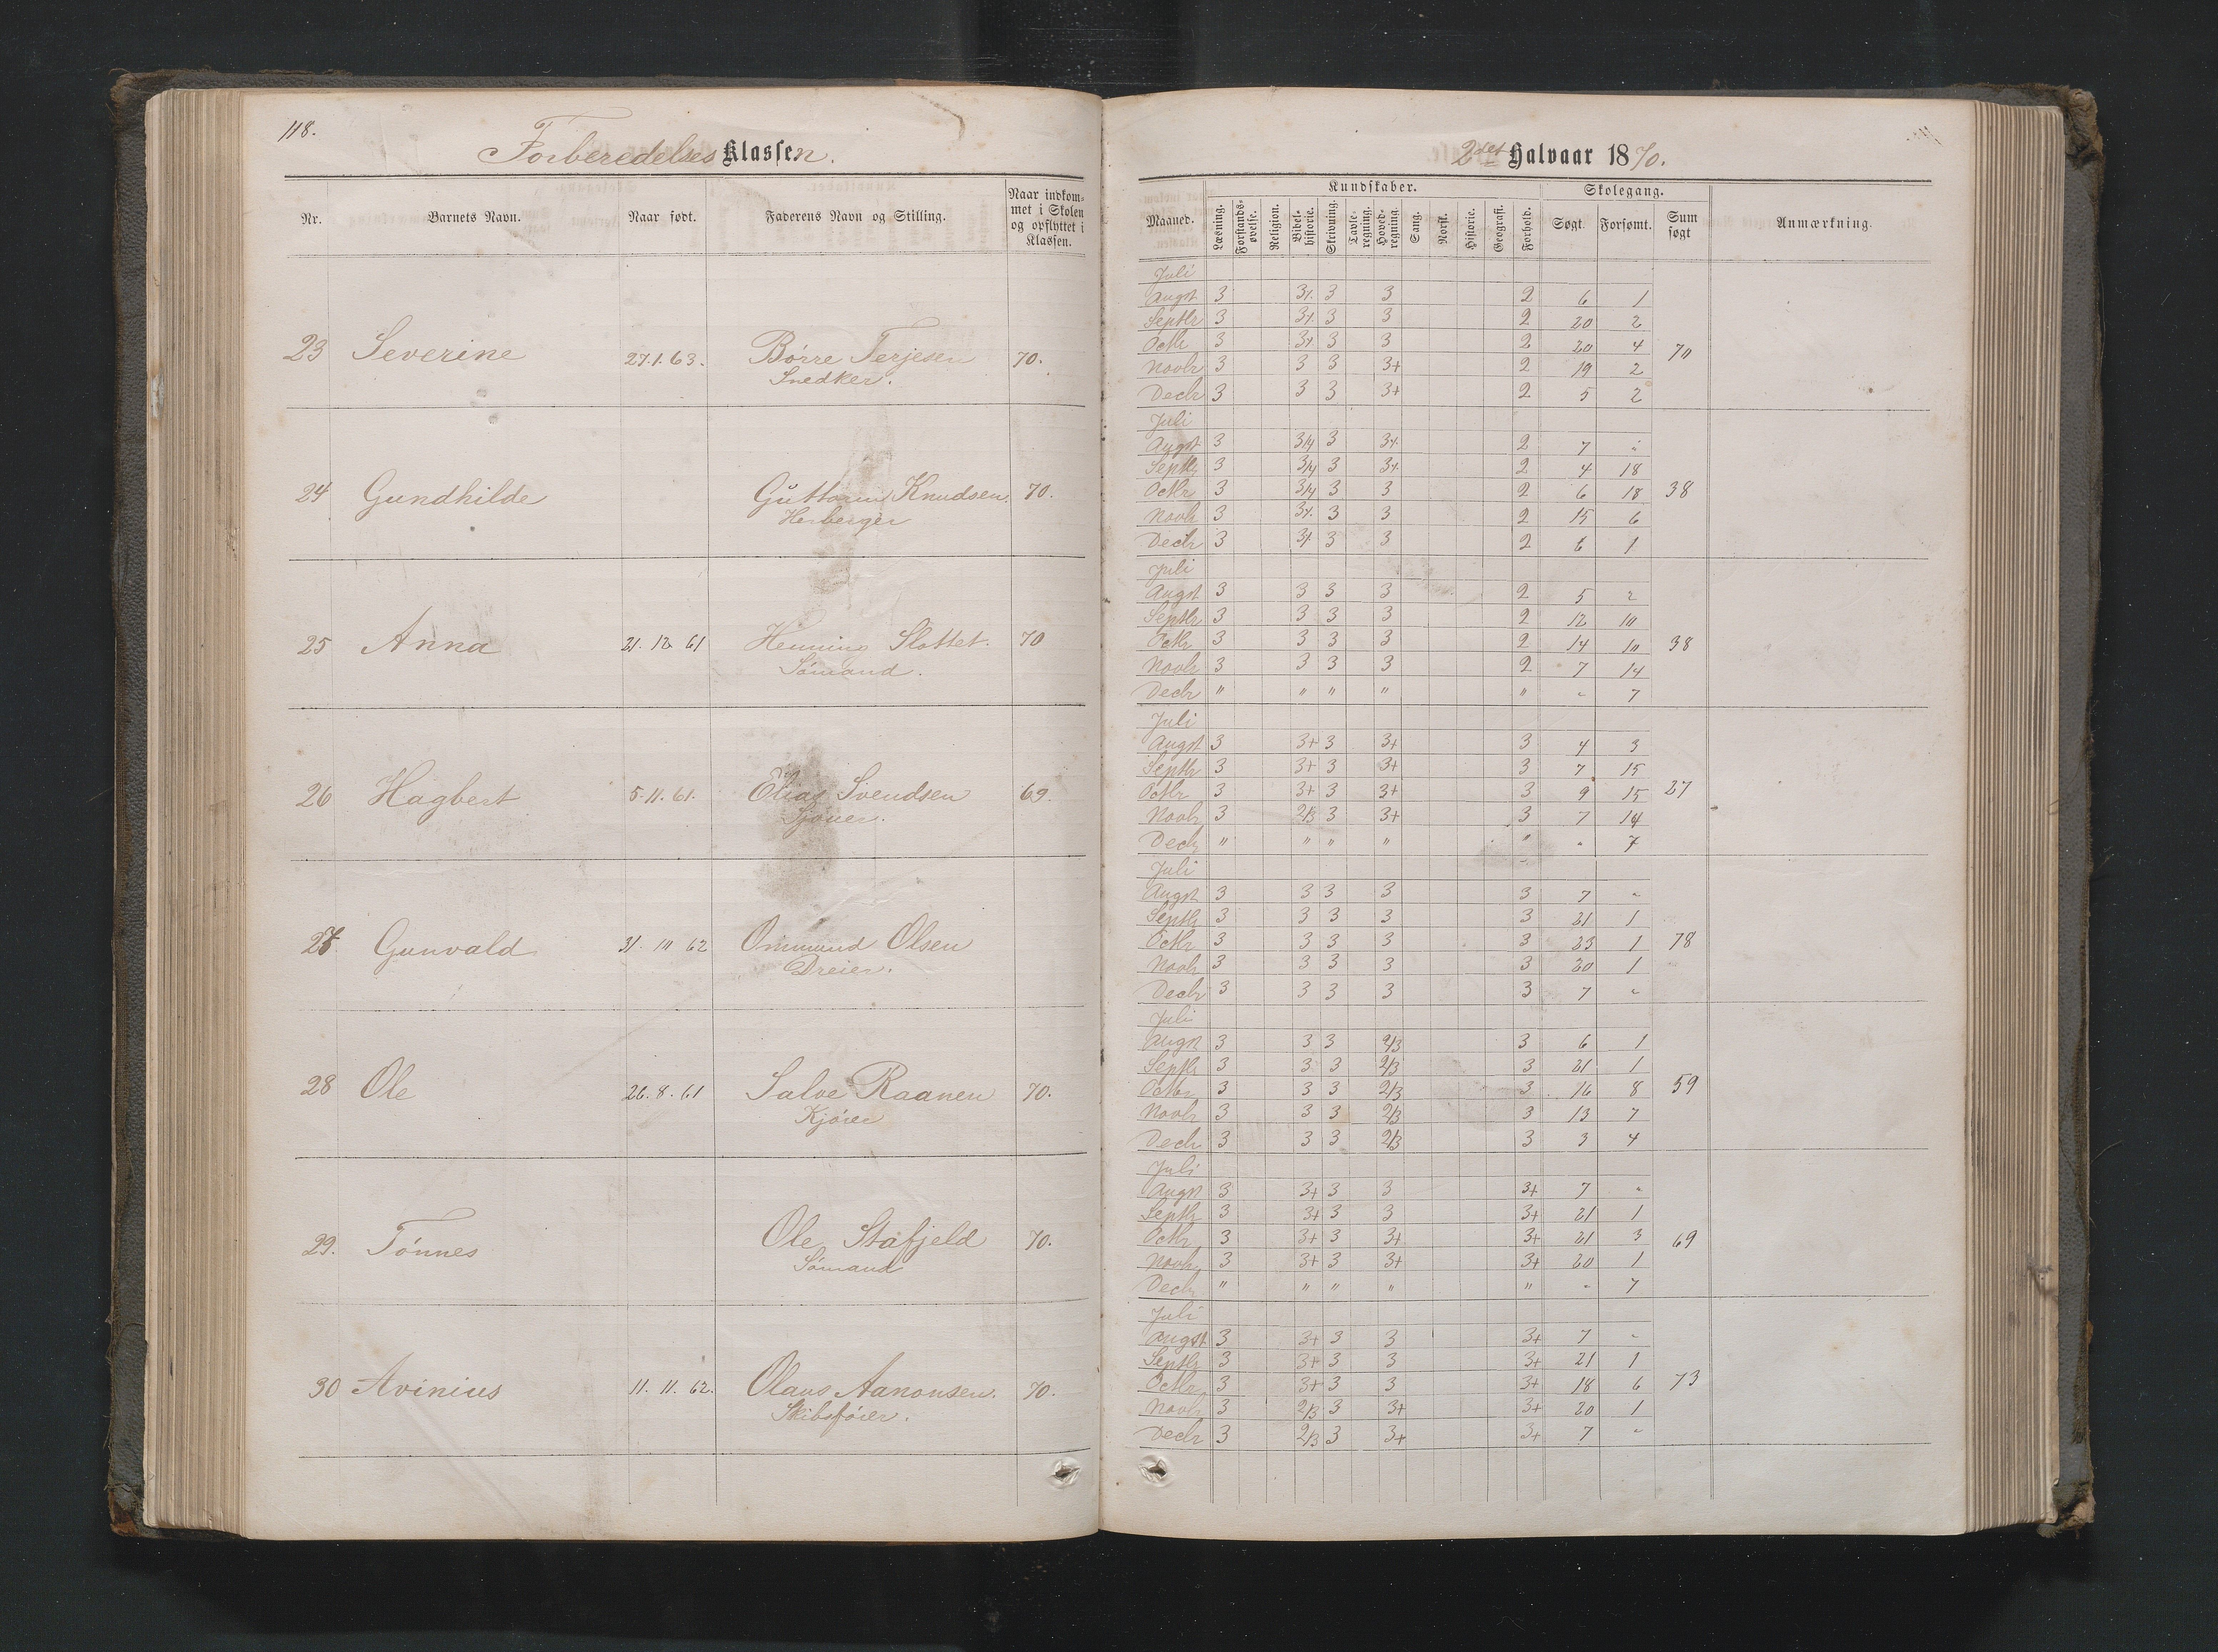 118.
Forberedelses Klassen.
Nr. Barnets Navn. Naar født. Faderens Navn og Stilling. Naar indkommet i Skolen og opflyttet i Klassen.
23 Severine 27.1.63. Børre Terjesen 70.
Snedker.
24 Gundhilde Guttorm Knudsen 70.
Herberger
25 Anna 21. 12 61 Henning Slottet. 70
Sømand.
26 Hagbert 5. 11. 61. Elias Svendsen 69.
27 Gunvald 31. 10 62 Ommund Olsen
Dreier.
28 Ole 26. 8. 61 Salve Raanen 70.
Kjører
29. Tønnes Ole Stafjeld 70.
Sømand
30 Avinius 11. 11. 62. Olaus Aanonsen. 70.
Skibsfører.
2det Halvaar 1870.
Kundskaber. Skolegang.
Maaned. Læsning. Forstandsøvelse. Religion. Bibelhistorie. Skrivning. Tavleregning. Hovedregning. Sang. Norsk. Historie. Geografi. Forhold. Søgt. Forsømt. Sum søgt Anmærkning.
Juli
Augst 3 3/. 3 3 2 6 1
Septbr 3 3/. 3 3 2 20 2
Octbr 3 3/. 3 3 2 20 4 70
Novbr 3 3 3 3+ 2 19 2
Decbr 3 3 3 3+ 2 5 2
Juli
Augst 3 3/4 3 3/. 2 7 "
Septbr 3 3/4 3 3/. 2 4 18
Octbr 3 3/4 3 3 2 6 18 38
Novbr 3 3/. 3 3 2 15 6
Decbr 3 3/. 3 3 2 6 1
Juli
Augst 3 3 3 3 2 5 2
Septbr 3 3 3 3 2 12 10
Octbr 3 3 3 3 2 14 10 38
Novbr 3 3 3 3 2 7 14
Decbr " " " " " " 7
Juli
Augst 3 3+ 3 3+ 3 4 3
Septbr 3 3+ 3 3+ 3 7 15
Octbr 3 3+ 3 3+ 3 9 15 27
Novbr 3 2/3 3 3+ 3 7 14
Decbr " " " " " " 7
Juli
Augst 3 3 3 3 3 7 "
Septbr 3 3 3 3 3 21 1
Octbr 3 3 3 3 3 23 1 78
Novbr 3 3 3 3 3 20 1
Decbr 3 3 3 3 3 7 "
Juli
Augst 3 3 3 2/3 3 6 1
Septbr 3 3 3 2/3 3 21 1
Octbr 3 3 3 2/3 3 16 8 59
Novbr 3 3 3 2/3 3 13 7
Decbr 3 3 3 2/3 3 3 4
Juli
Augst 3 3+ 3 3 3+ 7 "
Septbr 3 3+ 3 3 3+ 21 1
Octbr 3 3+ 3 3+ 3+ 21 3 69
Novbr 3 3+ 3 3+ 3+ 20 1
Decbr " " " " " " 7
Juli
Augst 3 3+ 3 3 3+ 7 "
Septbr 3 3+ 3 3 3+ 21 1
Octbr 3 3+ 3 3 3+ 18 6 73
Novbr 3 2/3 3 3+ 3+ 20 1
Decbr 3 2/3 3 3+ 3+ 7 "